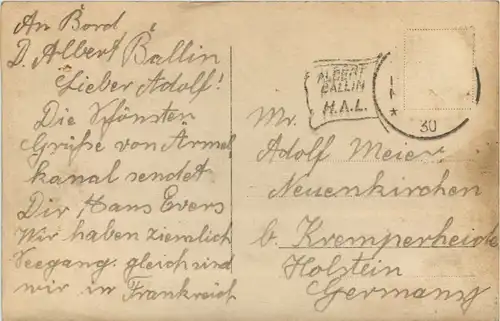 An Bord
D. Albert Ballin
Lieber Adolf!
Die Schönsten
Grüße von Ärmel
kanal sendet
Dir Hans Evers
Wir haben ziemlich
Seegang. gleich sind
wir in Frankreich
ALBERT
BALLIN
H.A.L.
30
Mr.
Adolf Meier
Neuenkirchen
b. Kremperheide
Holstein
Germany